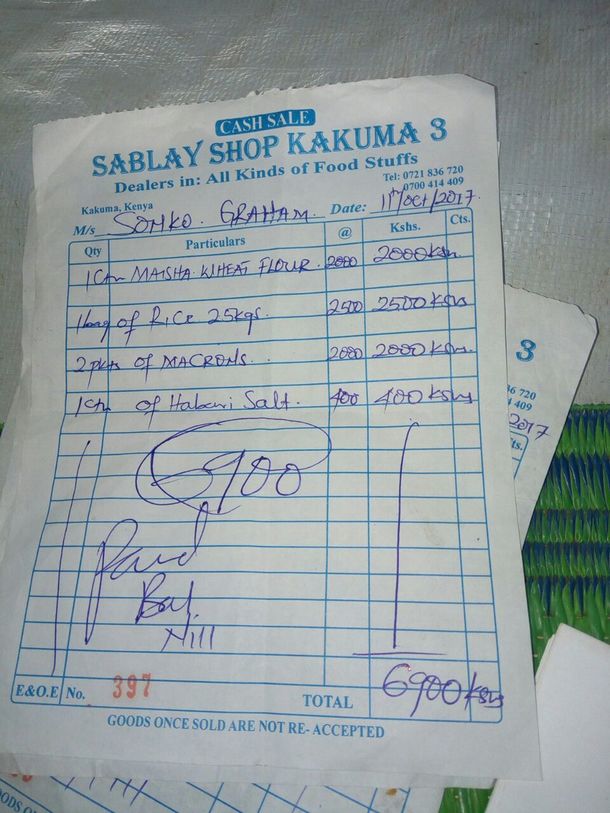 CASH SALE
SABLAY SHOP KAKUMA 3
Dealers in: All Kinds of Food Stuffs
Tel: 0721 836 720
0700 414 409
Kakuma, Kenya
M/s SOMKO. GRAHAM. Date: 11th/Oct/2017.
Qty Particulars @ Kshs. Cts.
1Ctn MAISHA WHEAT FLOUR. 2000 2000 Ksh
1bag of RICE 25kgs. 2500 2500 Kshs
2 pkts of MACRONS. 2000 2000 Kshs
1Ctn of Habari Salt. 400 400 Kshs
6900
Paid
Bal.
Nill
E&O.E No. 397 TOTAL 6900 Kshs
GOODS ONCE SOLD ARE NOT RE- ACCEPTED
3
2017